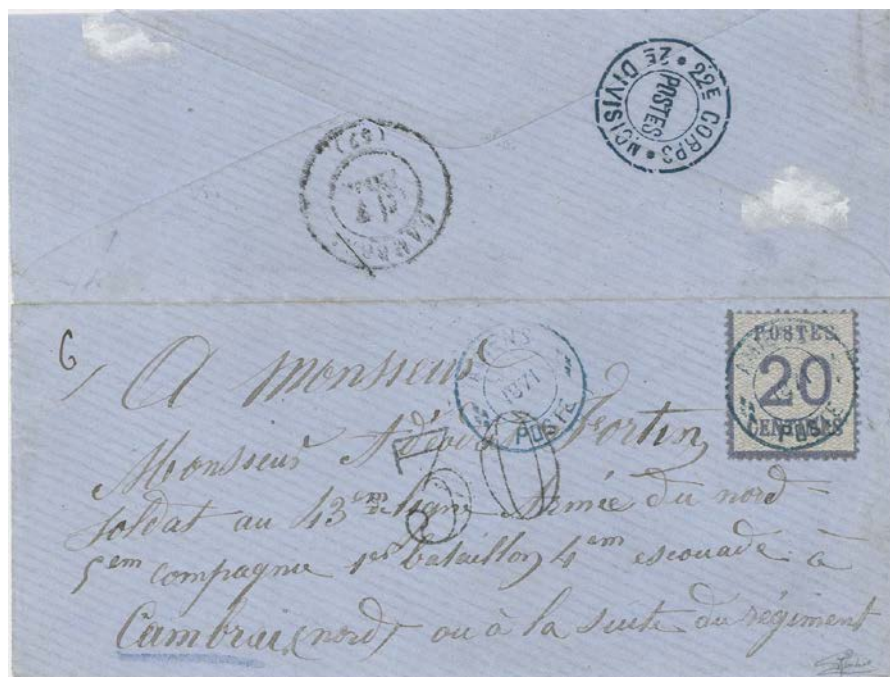 22E CORPS • 2E DIVISION •
POSTES
(57)
CAMBR
6
AMIENS
1871
POSTE
POSTES
20
CENTIMES
POSTE
A Monsieur
Monsieur Fortin
soldat au 43em de ligne Armée du nord
5em compagnie 1er bataillon 4em escouade à
Cambrai (nord) ou à la suite du régiment